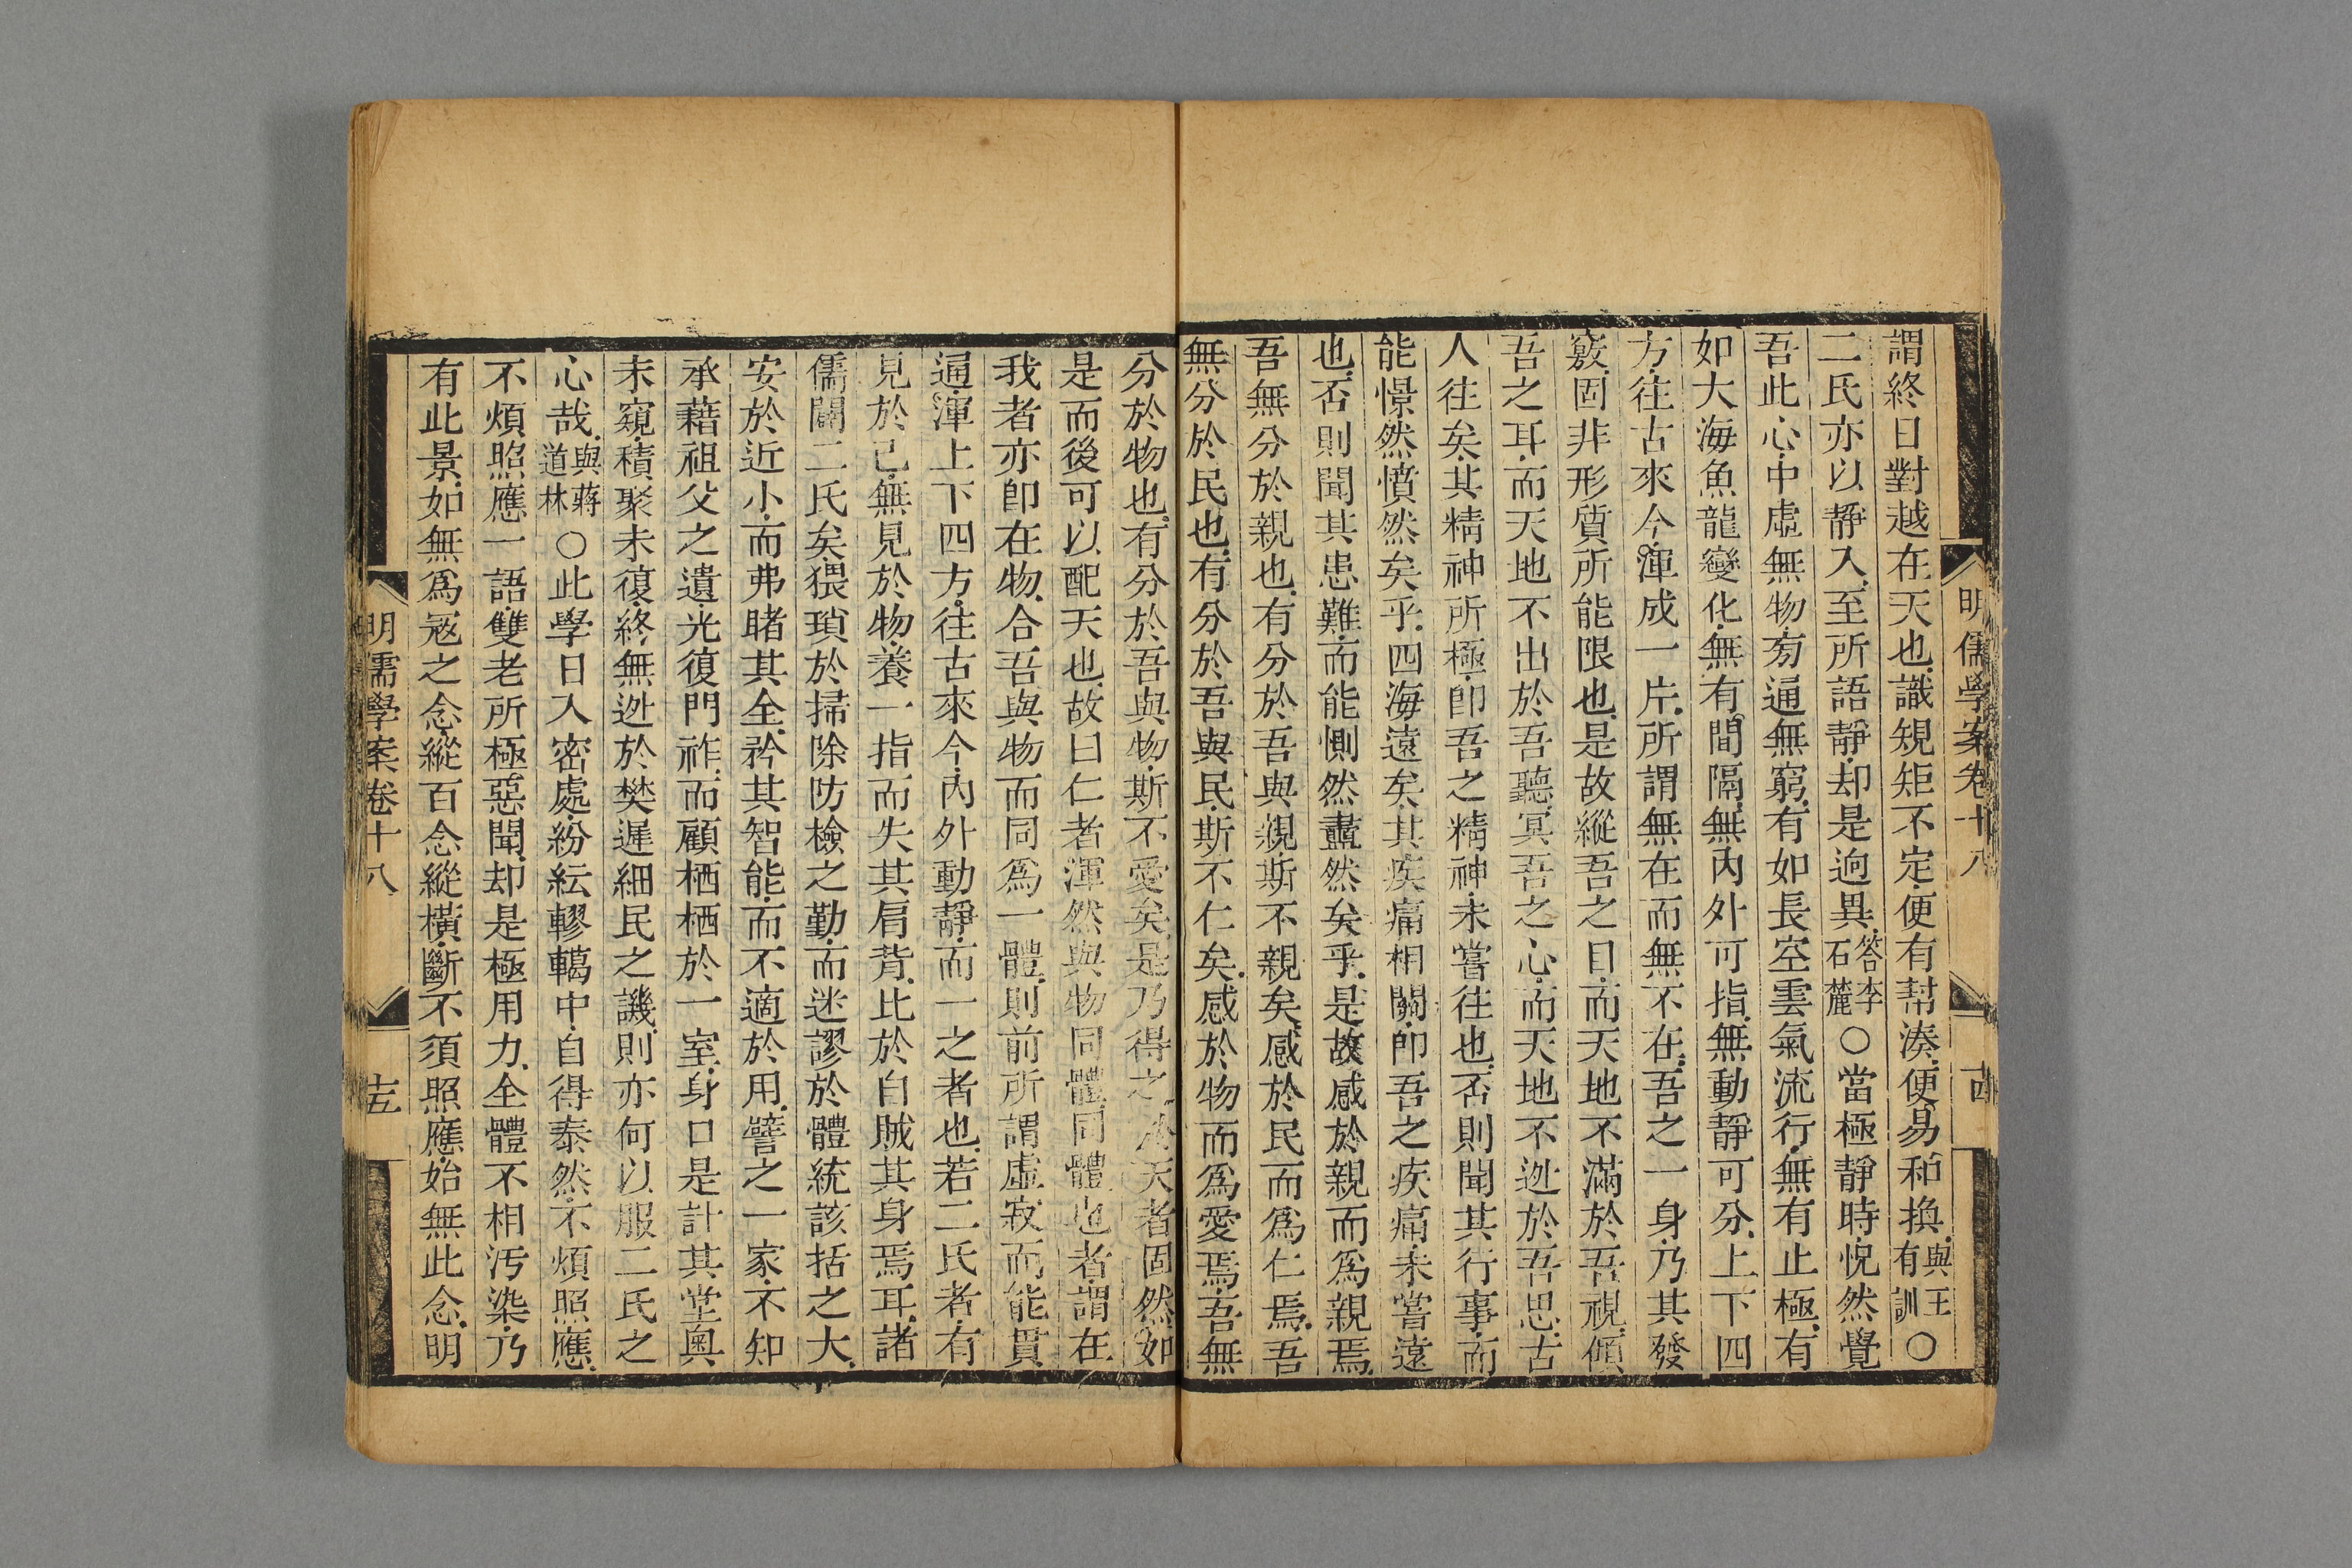 明儒學案卷十八
謂終日對越在天也識規矩不定便有幇湊便易和換與王有訓○
二氏亦以靜入至所語靜却是逈異答李石麓○當極靜時恍然覺
吾此心中虛無物旁通無窮有如長空雲氣流行無有止極有
如大海魚龍變化無有間隔無內外可指無動靜可分上下四
方往古來今渾成一片所謂無在而無不在吾之一身乃其發
竅固非形質所能限也是故縱吾之目而天地不滿於吾視傾
吾之耳而天地不出於吾聽冥吾之心而天地不迯於吾思古
人往矣其精神所極卽吾之精神未嘗往也否則聞其行事而
能憬然憤然矣乎四海遠矣其疾痛相關卽吾之疾痛未嘗遠
也否則聞其患難而能惻然衋然矣乎是故感於親而爲親焉
吾無分於親也有分於吾與親斯不親矣感於民而爲仁焉吾
無分於民也有分於吾與民斯不仁矣感於物而爲愛焉吾無
分於物也有分於吾與物斯不愛矣是乃得之於天者固然如
是而後可以配天也故曰仁者渾然與物同體同體也者謂在
我者亦卽在物合吾與物而同爲一體則前所謂虛寂而能貫
通渾上下四方往古來今內外動靜而一之者也若二氏者有
見於己無見於物養一指而失其肩背比於自賊其身焉耳諸
儒闢二氏矣猥瑣於掃除防檢之勤而迷謬於體統該括之大
安於近小而弗睹其全矜其智能而不適於用譬之一家不知
承藉祖父之遺光復門祚而顧栖栖於一室身口是計其堂奧
未窺積聚未復終無迯於樊遲細民之譏則亦何以服二氏之
心哉與蔣道林○此學日入密處紛紜轇轕中自得泰然不煩照應
不煩照應一語雙老所極惡聞却是極用力全體不相汚染乃
有此景如無爲寇之念縱百念縱橫斷不須照應始無此念明
明儒學案卷十八